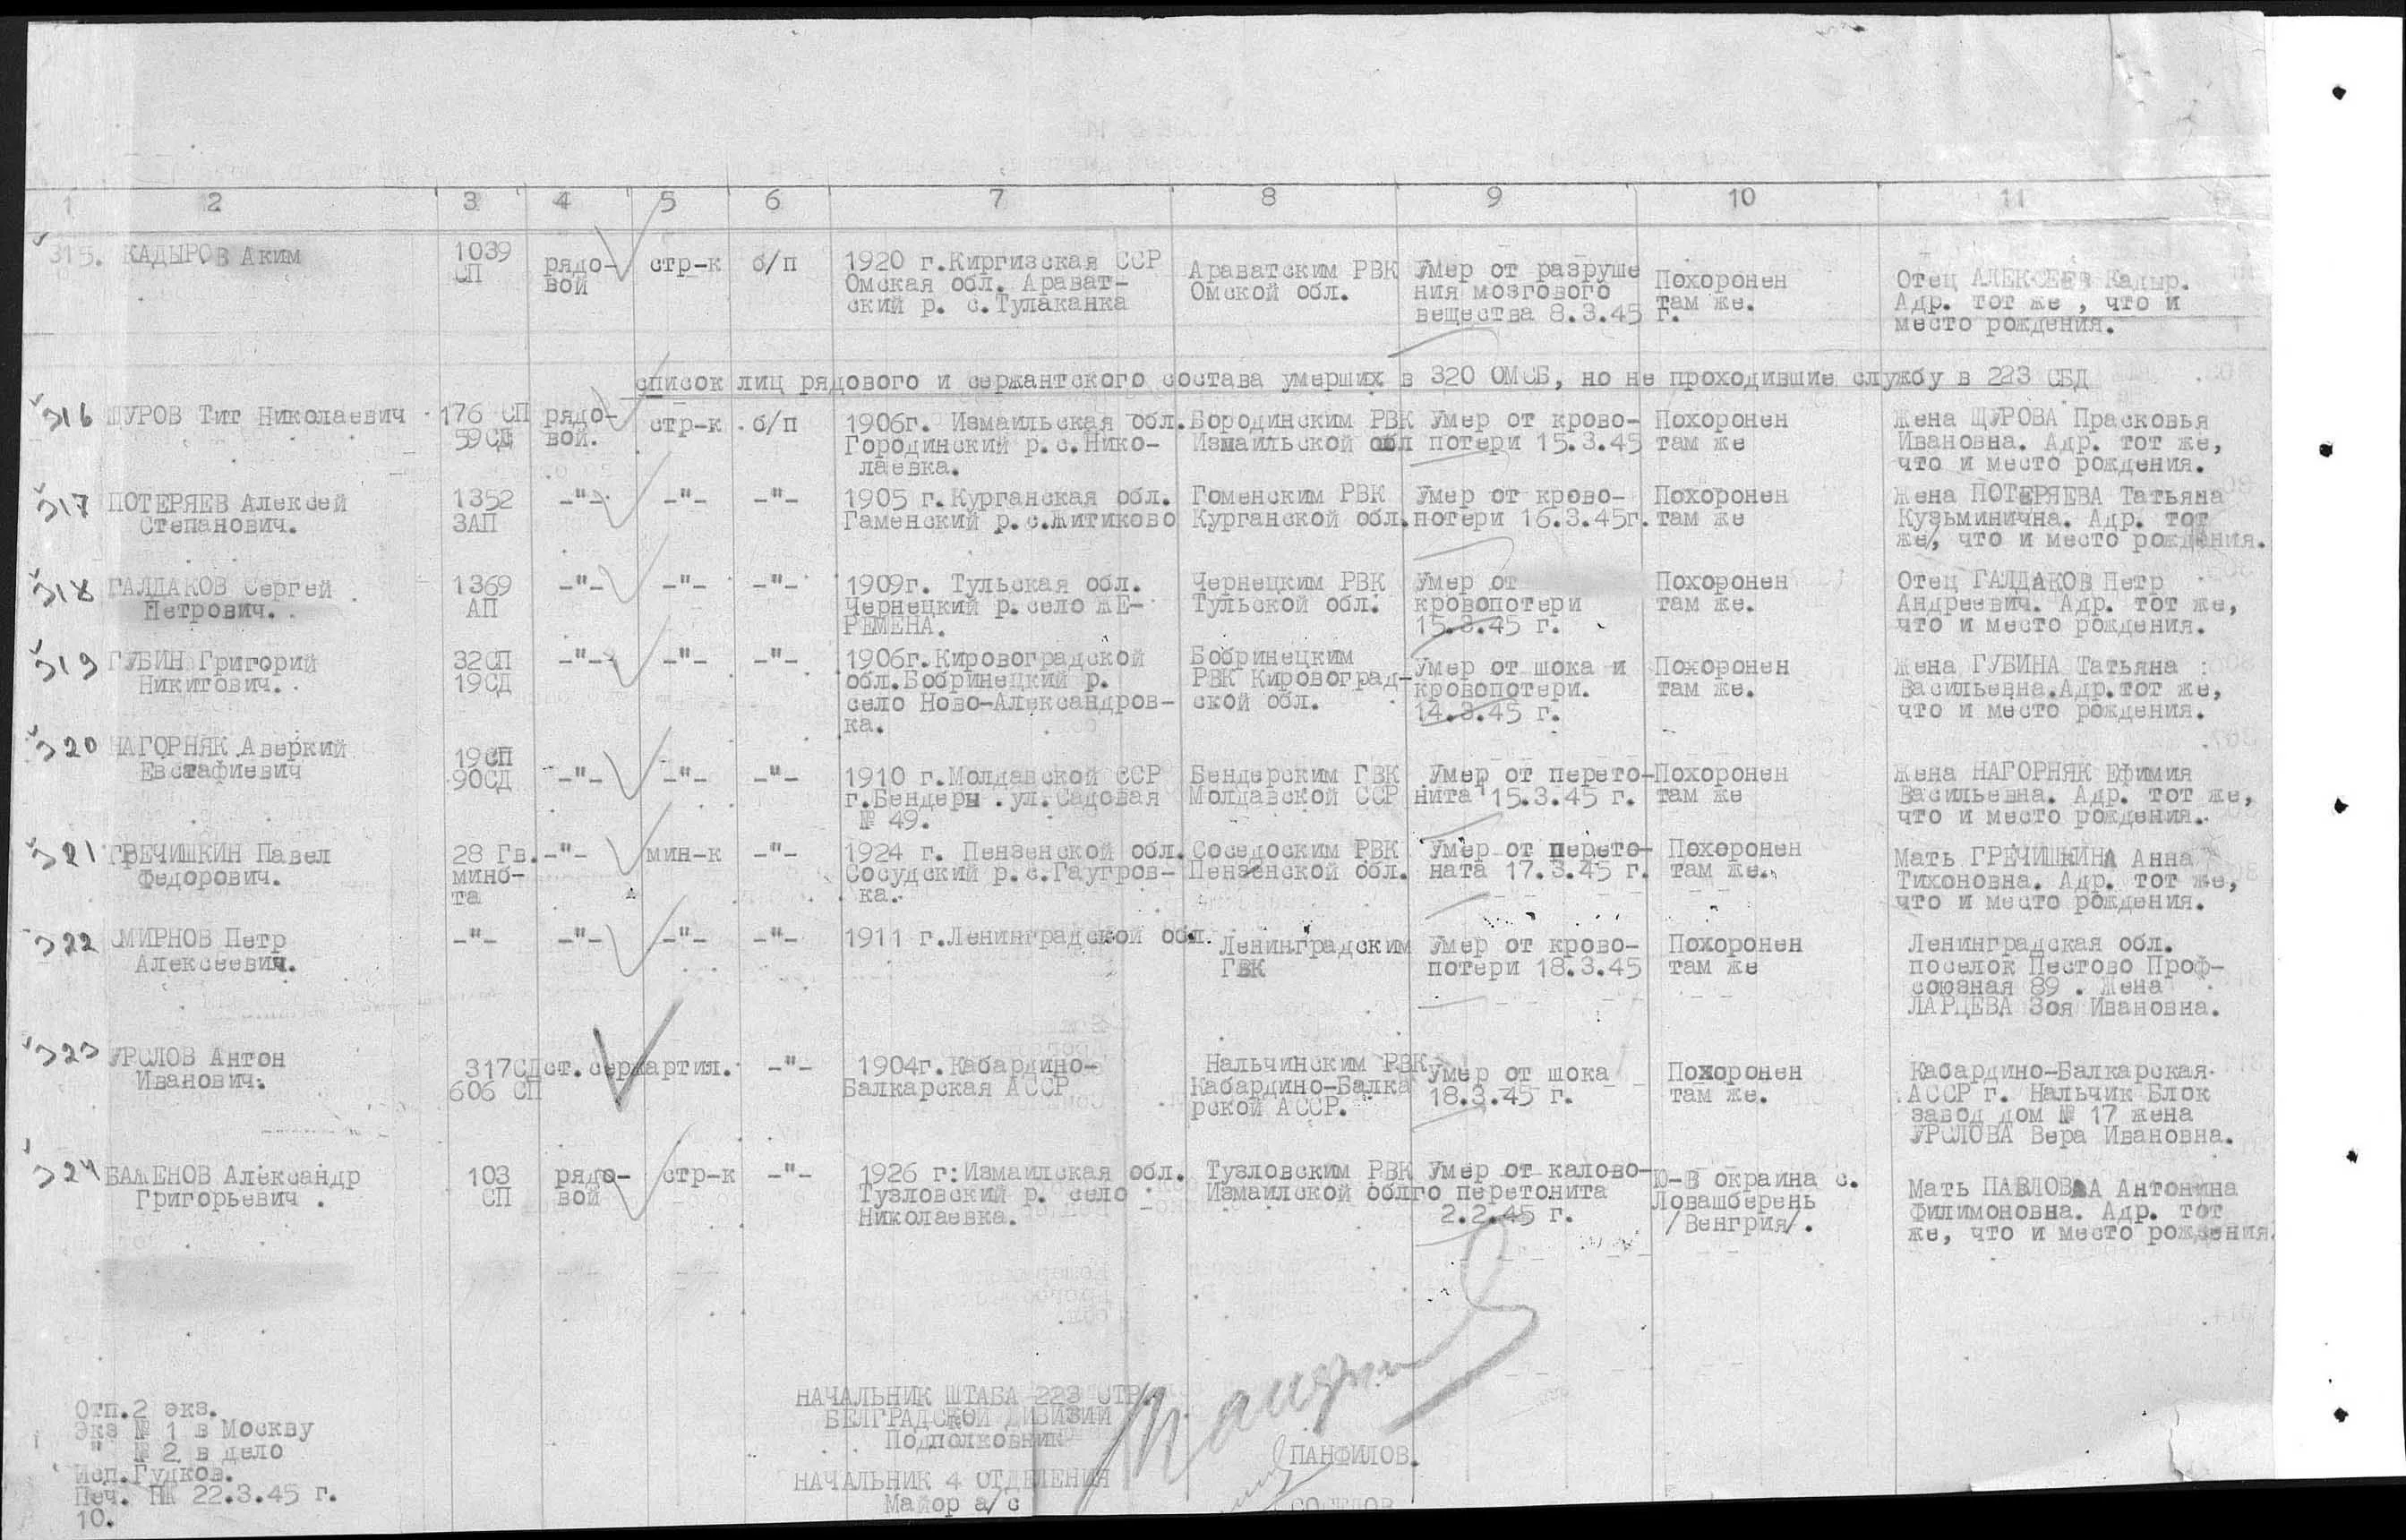 1 2 3 4 5 6 7 8 9 10 11
315. КАДЫРОВ Аким 1039 СП рядо-вой стр-к б/п 1920 г.Киргизская ССР Омская обл. Арават-ский р. с.Тулаканка Араватским РВК Омской обл. Умер от разруше ния мозгового вещества 8.3.45 г. Похоронен там же. Отец АЛЕКСЕЕВ Кадыр. Адр. тот же , что и место рождения.
список лиц рядового и сержантского состава умерших в 320 ОМСБ, но не проходившие службу в 223 СБД
316 ЩУРОВ Тит Николаевич 176 СП 59СД рядо-вой. стр-к б/п 1906г. Измаильская обл. Городинский р.с.Нико-лаевка. Бородинским РВК Измаильской обл Умер от крово-потери 15.3.45 Похоронен там же Жена ЩУРОВА Прасковья Ивановна. Адр. тот же, что и место рождения.
317 ПОТЕРЯЕВ Алексей Степанович. 1352 ЗАП -"- -"- -"- 1905 г.Курганская обл. Гаменский р.с.Житиково Гоменским РВК Курганской обл. Умер от крово-потери 16.3.45г. Похоронен там же Жена ПОТЕРЯЕВА Татьяна Кузьминична. Адр. тот же, что и место рождения.
318 ГАЛДАКОВ Сергей Петрович. 1369 АП -"- -"- -"- 1909г. Тульская обл. Чернецкий р.село ЖЕ-РЕМЕНА. Чернецким РВК Тульской обл. Умер от кровопотери 15.3.45 г. Похоронен там же. Отец ГАЛДАКОВ Петр Андреевич. Адр. тот же, что и место рождения.
319 ГУБИН Григорий Никитович. 32СП 19СД -"- -"- -"- 1906г.Кировоградской обл.Бобринецкий р. село Ново-Александров-ка. Бобринецким РВК Кировоград-ской обл. Умер от шока и кровопотери. 14.3.45 г. Похоронен там же. Жена ГУБИНА Татьяна Васильевна.Адр.тот же, что и место рождения.
320 НАГОРНЯК Аверкий Евстафиевич 19СП 90СД -"- -"- -"- 1910 г.Молдавской ССР г.Бендеры .ул.Садовая № 49. Бендерским ГВК Молдавской ССР Умер от перето-нита 15.3.45 г. Похоронен там же Жена НАГОРНЯК Ефимия Васильевна. Адр. тот же, что и место рождения.
321 ГРЕЧИШКИН Павел Федорович. 28 Гв. мино-та -"- мин-к -"- 1924 г. Пензенской обл. Сосудский р.с.Гаугров-ка. Соседоским РВК Пензенской обл. Умер от перето-ната 17.3.45 г. Похоронен там же. Мать ГРЕЧИШКИНА Анна Тихоновна. Адр. тот же, что и место рождения.
322 СМИРНОВ Петр Алексеевич. -"- -"- -"- -"- 1911 г.Ленинградской обл. Ленинградским ГВК Умер от крово-потери 18.3.45 Похоронен там же Ленинградская обл. поселок Пестово Проф-союзная 89 . Жена ЛАРЦЕВА Зоя Ивановна.
323 УРСЛОВ Антон Иванович. 317СД 606 СП ст.серж артил. -"- 1904г.Кабардино-Балкарская АССР Нальчинским РВК Кабардино-Балка рской АССР. Умер от шока 18.3.45 г. Похоронен там же. Кабардино-Балкарская АССР г. Нальчик Блок завод дом № 17 жена УРСЛОВА Вера Ивановна.
324 БАЖЕНОВ Александр Григорьевич . 103 СП рядо-вой стр-к -"- 1926 г:Измаилская обл. Тузловский р. село Николаевка. Тузловским РВК Измаилской обл Умер от калово-го перетонита 2.2.45 г. Ю-В окраина с. Ловашберень /Венгрия/. Мать ПАВЛОВА Антонина Филимоновна. Адр. тот же, что и место рождения.
Отп.2 экз.
Экз № 1 в Москву
" № 2 в дело
Исп.Гудков.
Печ. ПК 22.3.45 г.
10.
НАЧАЛЬНИК ШТАБА 223 СТР.
БЕЛГРАДСКОЙ ДИВИЗИИ
Подполковник
ПАНФИЛОВ.
НАЧАЛЬНИК 4 ОТДЕЛЕНИЯ
Майор а/с